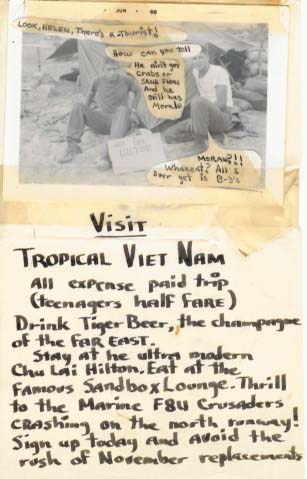 • JUN • 66
LOOK, HELEN, There's a Tourist!
How can you tell
He ain't got
Crabs or
SAND FLEAS
And he
still has
Morale
MORALE?!!
Whaaeat? All I
Ever get is B-3's
VISIT
TROPICAL VIET NAM
All expense paid trip
(teenagers half FARE)
Drink Tiger Beer, the champagne
of the FAR EAST.
Stay at he ultra modern
Chu Lai Hilton. Eat at the
Famous Sandbox Lounge. Thrill
to the Marine F8U Crusaders
CRASHING on the north runway!
Sign up today and Avoid the
rush of November replacements